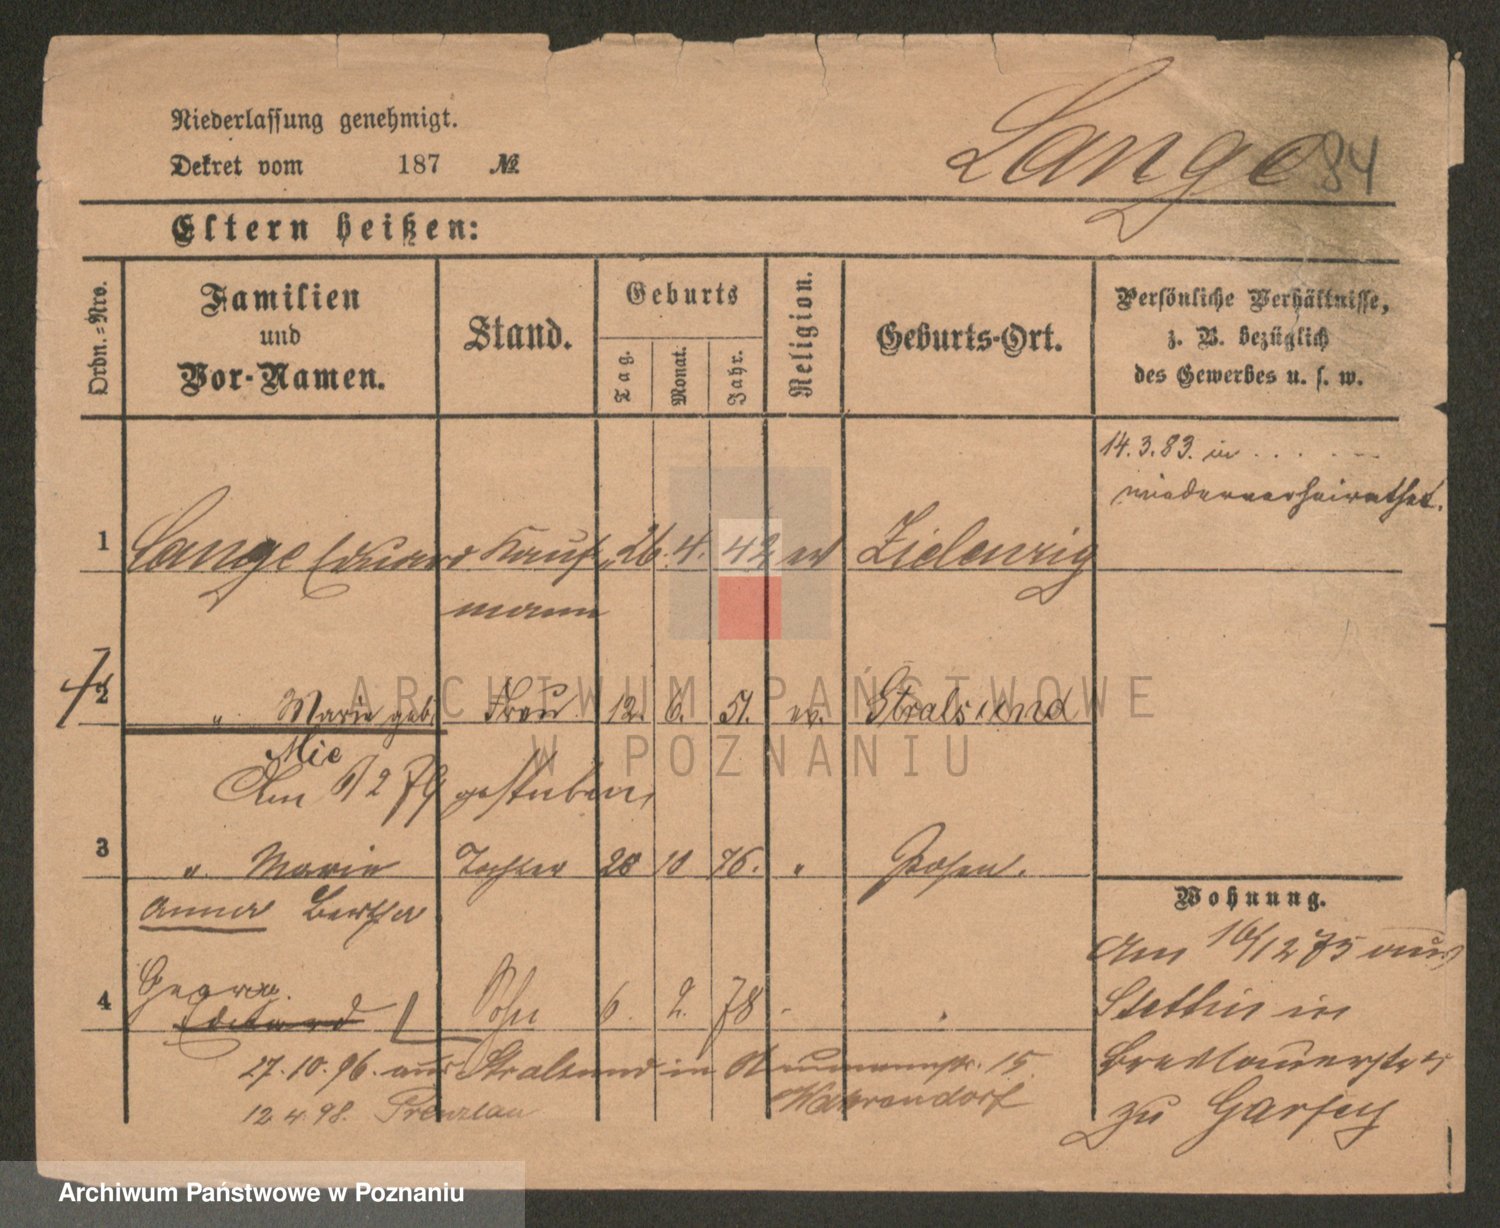 Niederlassung genehmigt.
Dekret vom 187 №
Lange 84
Eltern heißen:
Ordn.-Nro.
Familien
und
Vor-Namen.
Stand.
Geburts
Tag.
Monat.
Jahr.
Religion.
Geburts-Ort.
Persönliche Verhältnisse,
z. B. bezüglich
des Gewerbes u. s. w.
14.3.83. in . . . . .
wiederverheirathet.
1 Lange Eduard Kauf- 26. 4. 42 ev Zielenzig
mann
2 " Marie geb. Frau 12. 6. 51. ev. Stralsund
Mie
Am 6/2 79 gestorben,
3 " Marie Tochter 28 10 76. " Posen.
Anna Bertha
Wohnung.
Am 16/12 75 aus
Stettin in
Breslauerstr
zu
4 Georg
Eduard Sohn 6. 2. 78 " "
27.10.96. aus Stralsund in 15.
12.4.98. Prenzlau
ARCHIWUM PAŃSTWOWE
W POZNANIU
Archiwum Państwowe w Poznaniu